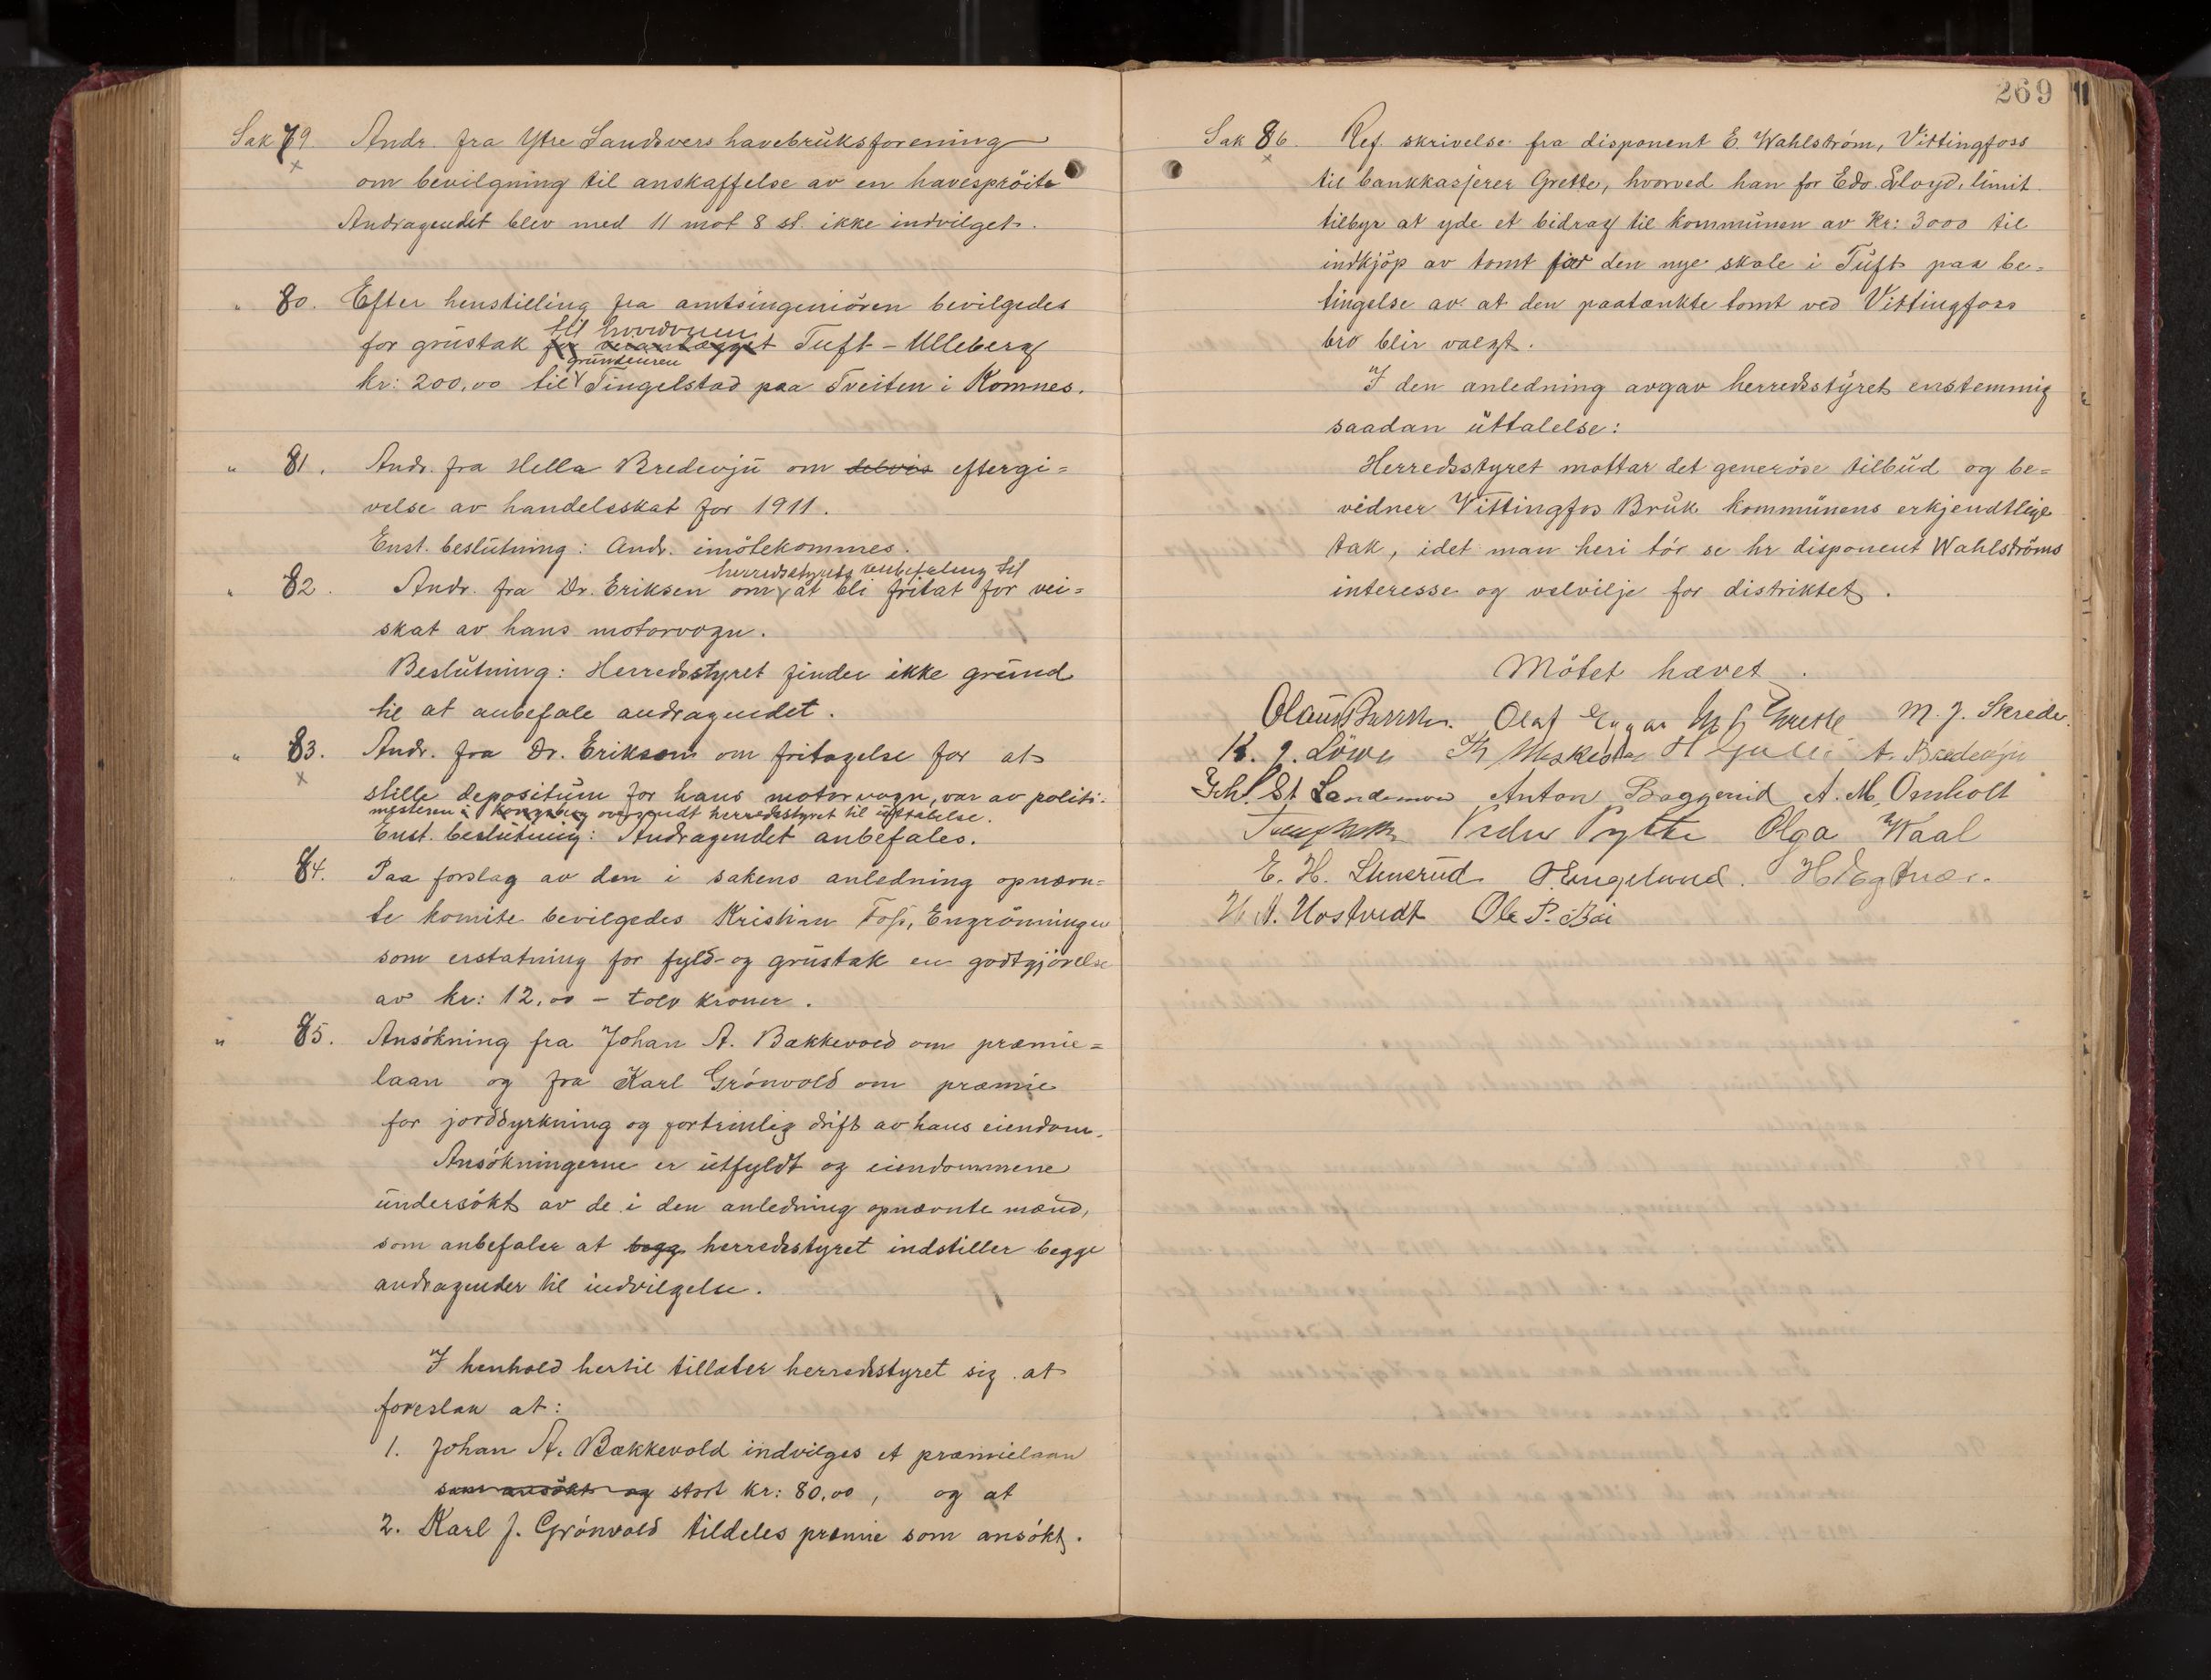 Sak 79. Andr. fra Ytre Sandsvers havebruksforening
om bevilgning til anskaffelse av en havesprøite
Andragendet blev med 11 mot 8 st. ikke indvilget.
" 80. Efter henstilling fra amtsingeniøren bevilgedes
til hovedveien
for grustak for veianlægget Tuft - Ulleberg
grundeieren
kr: 200,00 til Tingelstad paa Tveiten i Komnes.
" 81. Andr. fra Hella Bredevju om delvis eftergi=
velse av handelsskat for 1911.
Enst. beslutning: Andr. imøtekommes.
herredsstyrets anbefaling til
" 82. Andr. fra Dr. Eriksen om at bli fritat for vei=
skat av hans motorvogn.
Beslutning: Herredsstyret finder ikke grund
til at anbefale andragendet.
" 83. Andr. fra Dr. Eriksen om fritagelse for at
stille depositum for hans motorvogn, var av politi-
mesteren i Kongsberg oversendt herredsstyret til uttalelse.
Enst. beslutning: Andragendet anbefales.
" 84. Paa forslag av den i sakens anledning opnævn=
te komite bevilgedes Kristian Foss, Engrønningen
som erstatning for fyld- og grustak en godtgjørelse
av kr: 12,00 - tolv kroner.
" 85. Ansøkning fra Johan A. Bakkevold om præmie=
laan og fra Karl Grønvold om præmie
for jorddyrkning og fortrinlig drift av hans eiendom.
Ansøkningerne er utfyldt og eiendommene
undersøkt av de i den anledning opnævnte mænd,
som anbefaler at begg herredsstyret indstiller begge
andragender til indvilgelse.
I henhold hertil tillater herredsstyret sig at
foreslaa at:
1. Johan A. Bækkevold indvilges et præmielaan
som ansøkt og stort kr: 80,00, og at
2. Karl J. Grønvold tildeles præmie som ansøkt.
269
Sak 86. Ref. skrivelse fra disponent E. Wahlstrøm, Vittingfoss
til bankkasjerer Grette, hvorved han for Edv. Lloyd, limit.
tilbyr at yde et bidrag til kommunen av kr: 3000 til
indkjøp av tomt for den nye skole i Tuft paa be=
tingelse av at den paatænkte tomt ved Vittingfoss
bro blir valgt.
I den anledning avgav herredsstyret enstemmig
saadan uttalelse:
Herredsstyret mottar det generøse tilbud og be=
vidner Vittingfos Bruk kommunens erkjendtlige
tak, idet man heri tør se hr disponent Wahlstrøms
interesse og velvilje for distriktet.
Møtet hævet.
Olaf Grette M. J. Skrede.
K. J. Löwe Th A. Bredevju
St Landemoe Anton Baggerud A. M. Omholt
Peder Pytte Olga Waal
E. H. Stenerud O. Engelund.
H. A. Hostvedt Ole P. Bøe